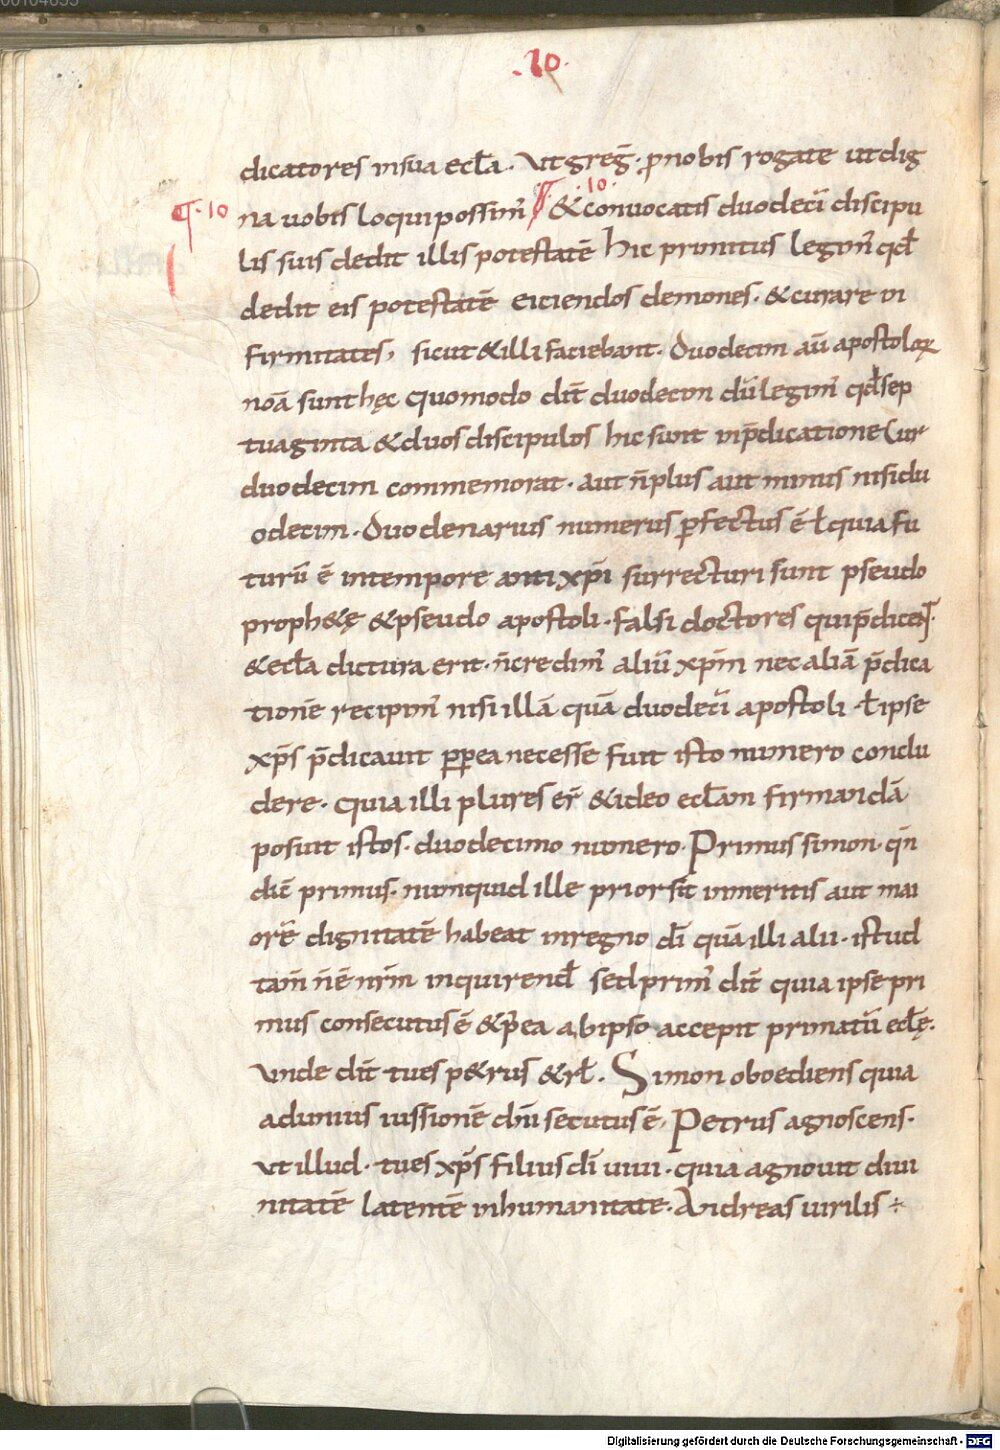 .10.
dicatores insua ecl̄a. Ut greḡ. ꝓnobis rogate ut dig
¶.10 na uobis loqui possim̄ ¶.10. & convocatis duodecī discipu
lis suis dedit illis potestatē hic primitus legim̄ qđ
dedit eis potestatē eiciendos demones. & curare in
firmitates, sicut & illi faciebant. Duodecim aū apostoloꝝ
noā sunt hęc quomodo dic̄ duodecim dū legim̄ qđ sep
tuaginta & duos discipulos hic sunt inp̄dicatione Cur
duodecim commemorat. aut n̄ plus aut minus nisi du
odecim. Duodenarius numerus ꝑfectus ē ł quia fu
turū ē intempore anti xp̄i surrecturi sunt pseudo
proph&ę & pseudo apostoli. falsi doctores qui p̄dicent.
& ecl̄a dictura erit. n̄ credim̄ aliū xp̄m nec aliā p̄dica
tionē recipim̄ nisi illā quā duodecī apostoli ł ipse
xp̄s p̄dicauit ꝓꝑea necesse fuit isto numero conclu
dere. quia illi plures er̄ & ideo ecl̄am firmandā
posuit istos. duodecimo numero. Primus simon. qn̄
dic̄ primus. numquid ille prior sit inmeritis aut mai
orē dignitatē habeat inregno dī quā illi alii. istud
tam̄ n̄ ē nr̄m inquirend̄ sed prim̄ dic̄ quia ipse pri
mus consecutus ē & p̄ea ab ipso accepit primatū ecl̄ę.
unde dic̄ tu es p&rus & rł. Simon oboediens quia
ad unius iussionē dn̄i secutus ē, Petrus agnoscens.
ut illud. tu es xp̄s filius dī uiui. quia agnouit diui
nitatē latentē inhumanitate. Andreas uirilis ÷
Digitalisierung gefördert durch die Deutsche Forschungsgemeinschaft - DFG